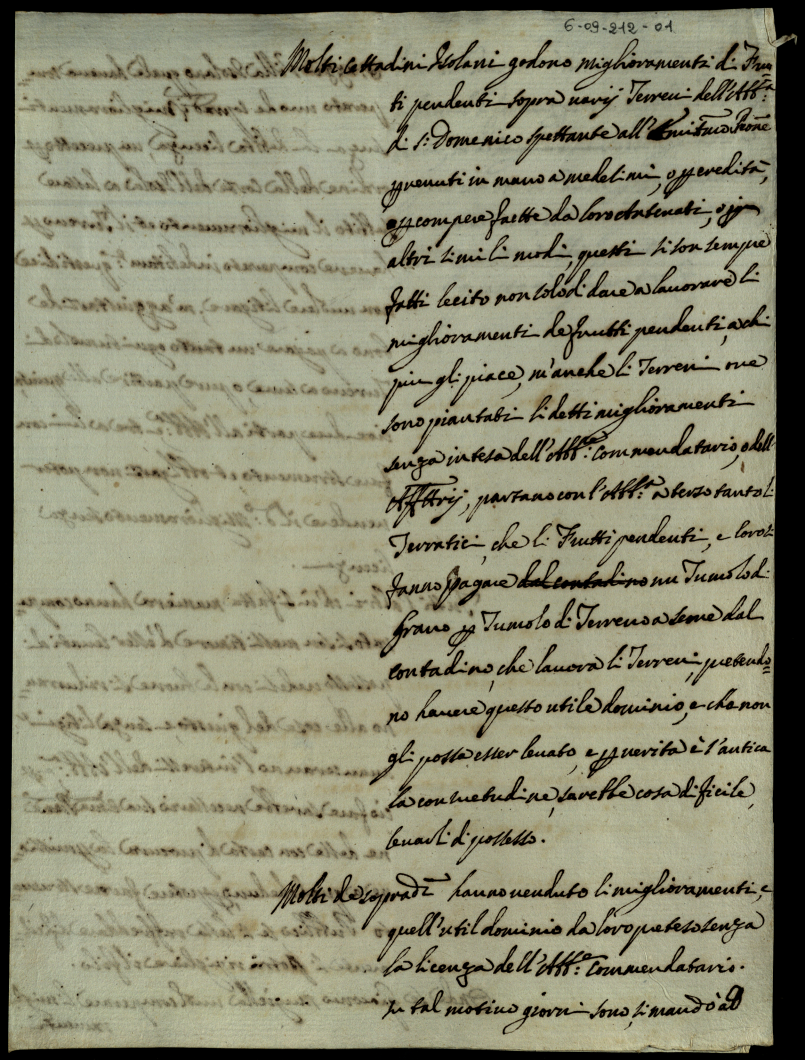 6-09-212-01
Molti Cettadini Isolani godono miglioramenti di Fru=
ti pendenti sopra varij Terreni dell'Abb.a
di S: Domenico spettante all'Em
pervenuti in mano a medesimi, o per eredità,
o per compere fatte da loro Antenati, o per
altri simili modi, questi si son sempre
fatti lecito non solo di dare a lavorare li
miglioramenti de frutti pendenti, a chi
piu gli piace, m'anche li Terreni ove
sono piantati li detti miglioramenti
senza intesa dell'Abb.e Commendatario, o dell'
Affittrij, partano con l'Abb.a a terzo tanto li
Terratici, che li Frutti pendenti, e loro si
fanno pagare dal contadino un Tumolo di
Grano per Tumolo di Terreno a seme dal
contadino, che lavora li Terreni, pretendo=
no havere questo utile dominio, e che non
gli possa esser levato, e per verità è l'antica
la consuetudine, sarebbe cosa dificile,
levarli di possesso.
Molti de sopradi hanno venduto li miglioramenti, e
quell'util dominio da loro preteso senza
la licenza dell'Abb.e Commendatario.
tal motivo giorni sono, si mandò ad